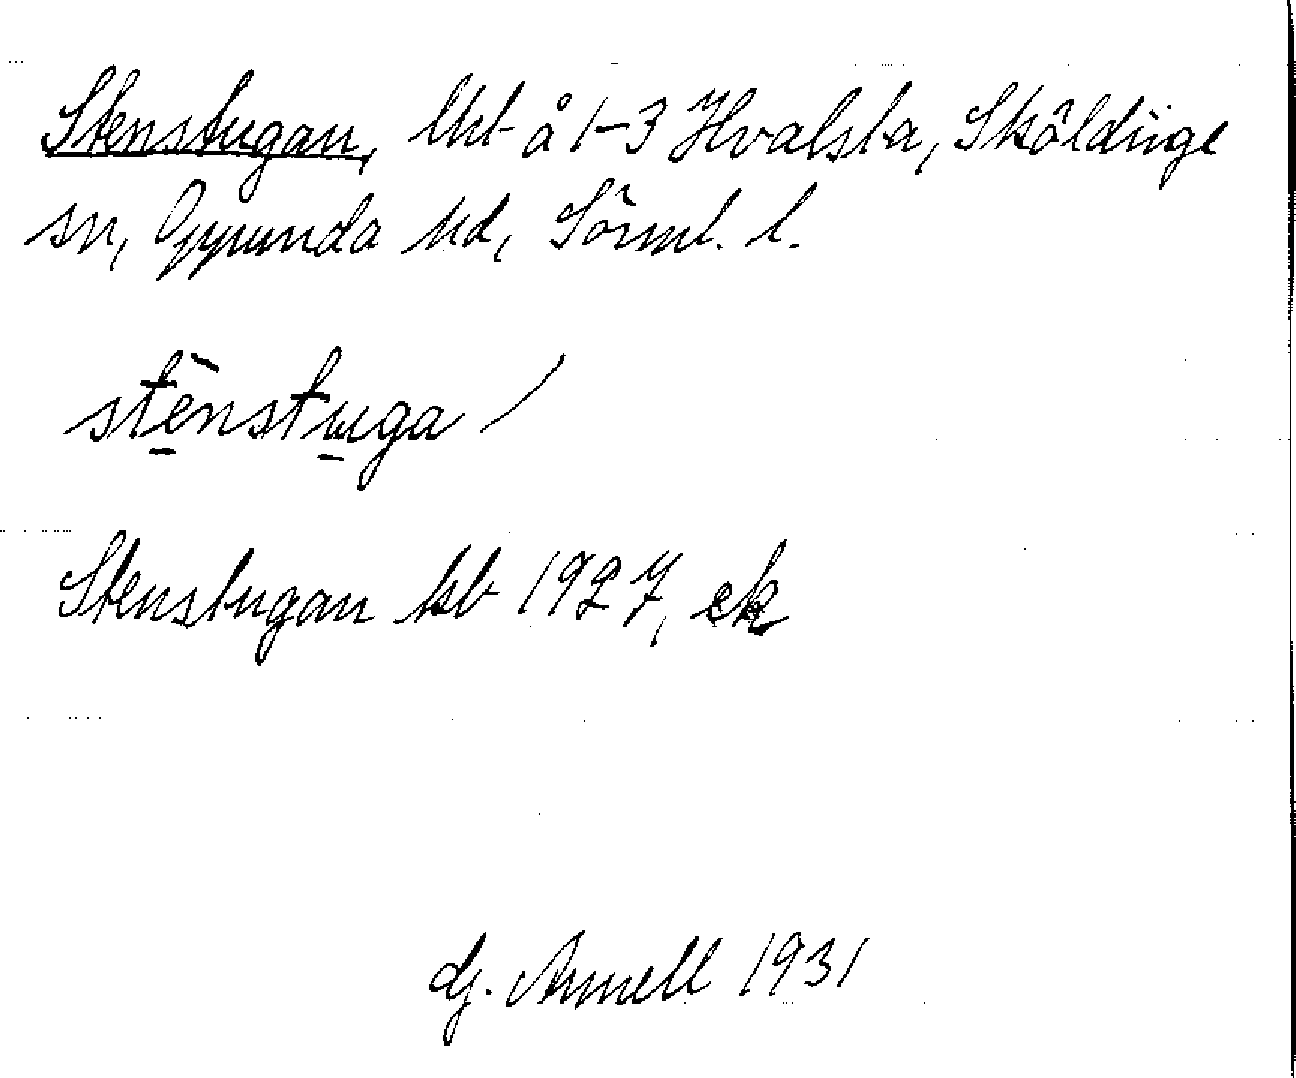 Stenstugan, lht å 1-3 Hvalsta, Sköldinge
sn, Oppunda hd, Sörml. l.
stènstuga /
Stenstugan kb 1927, ek
Arnell 1931